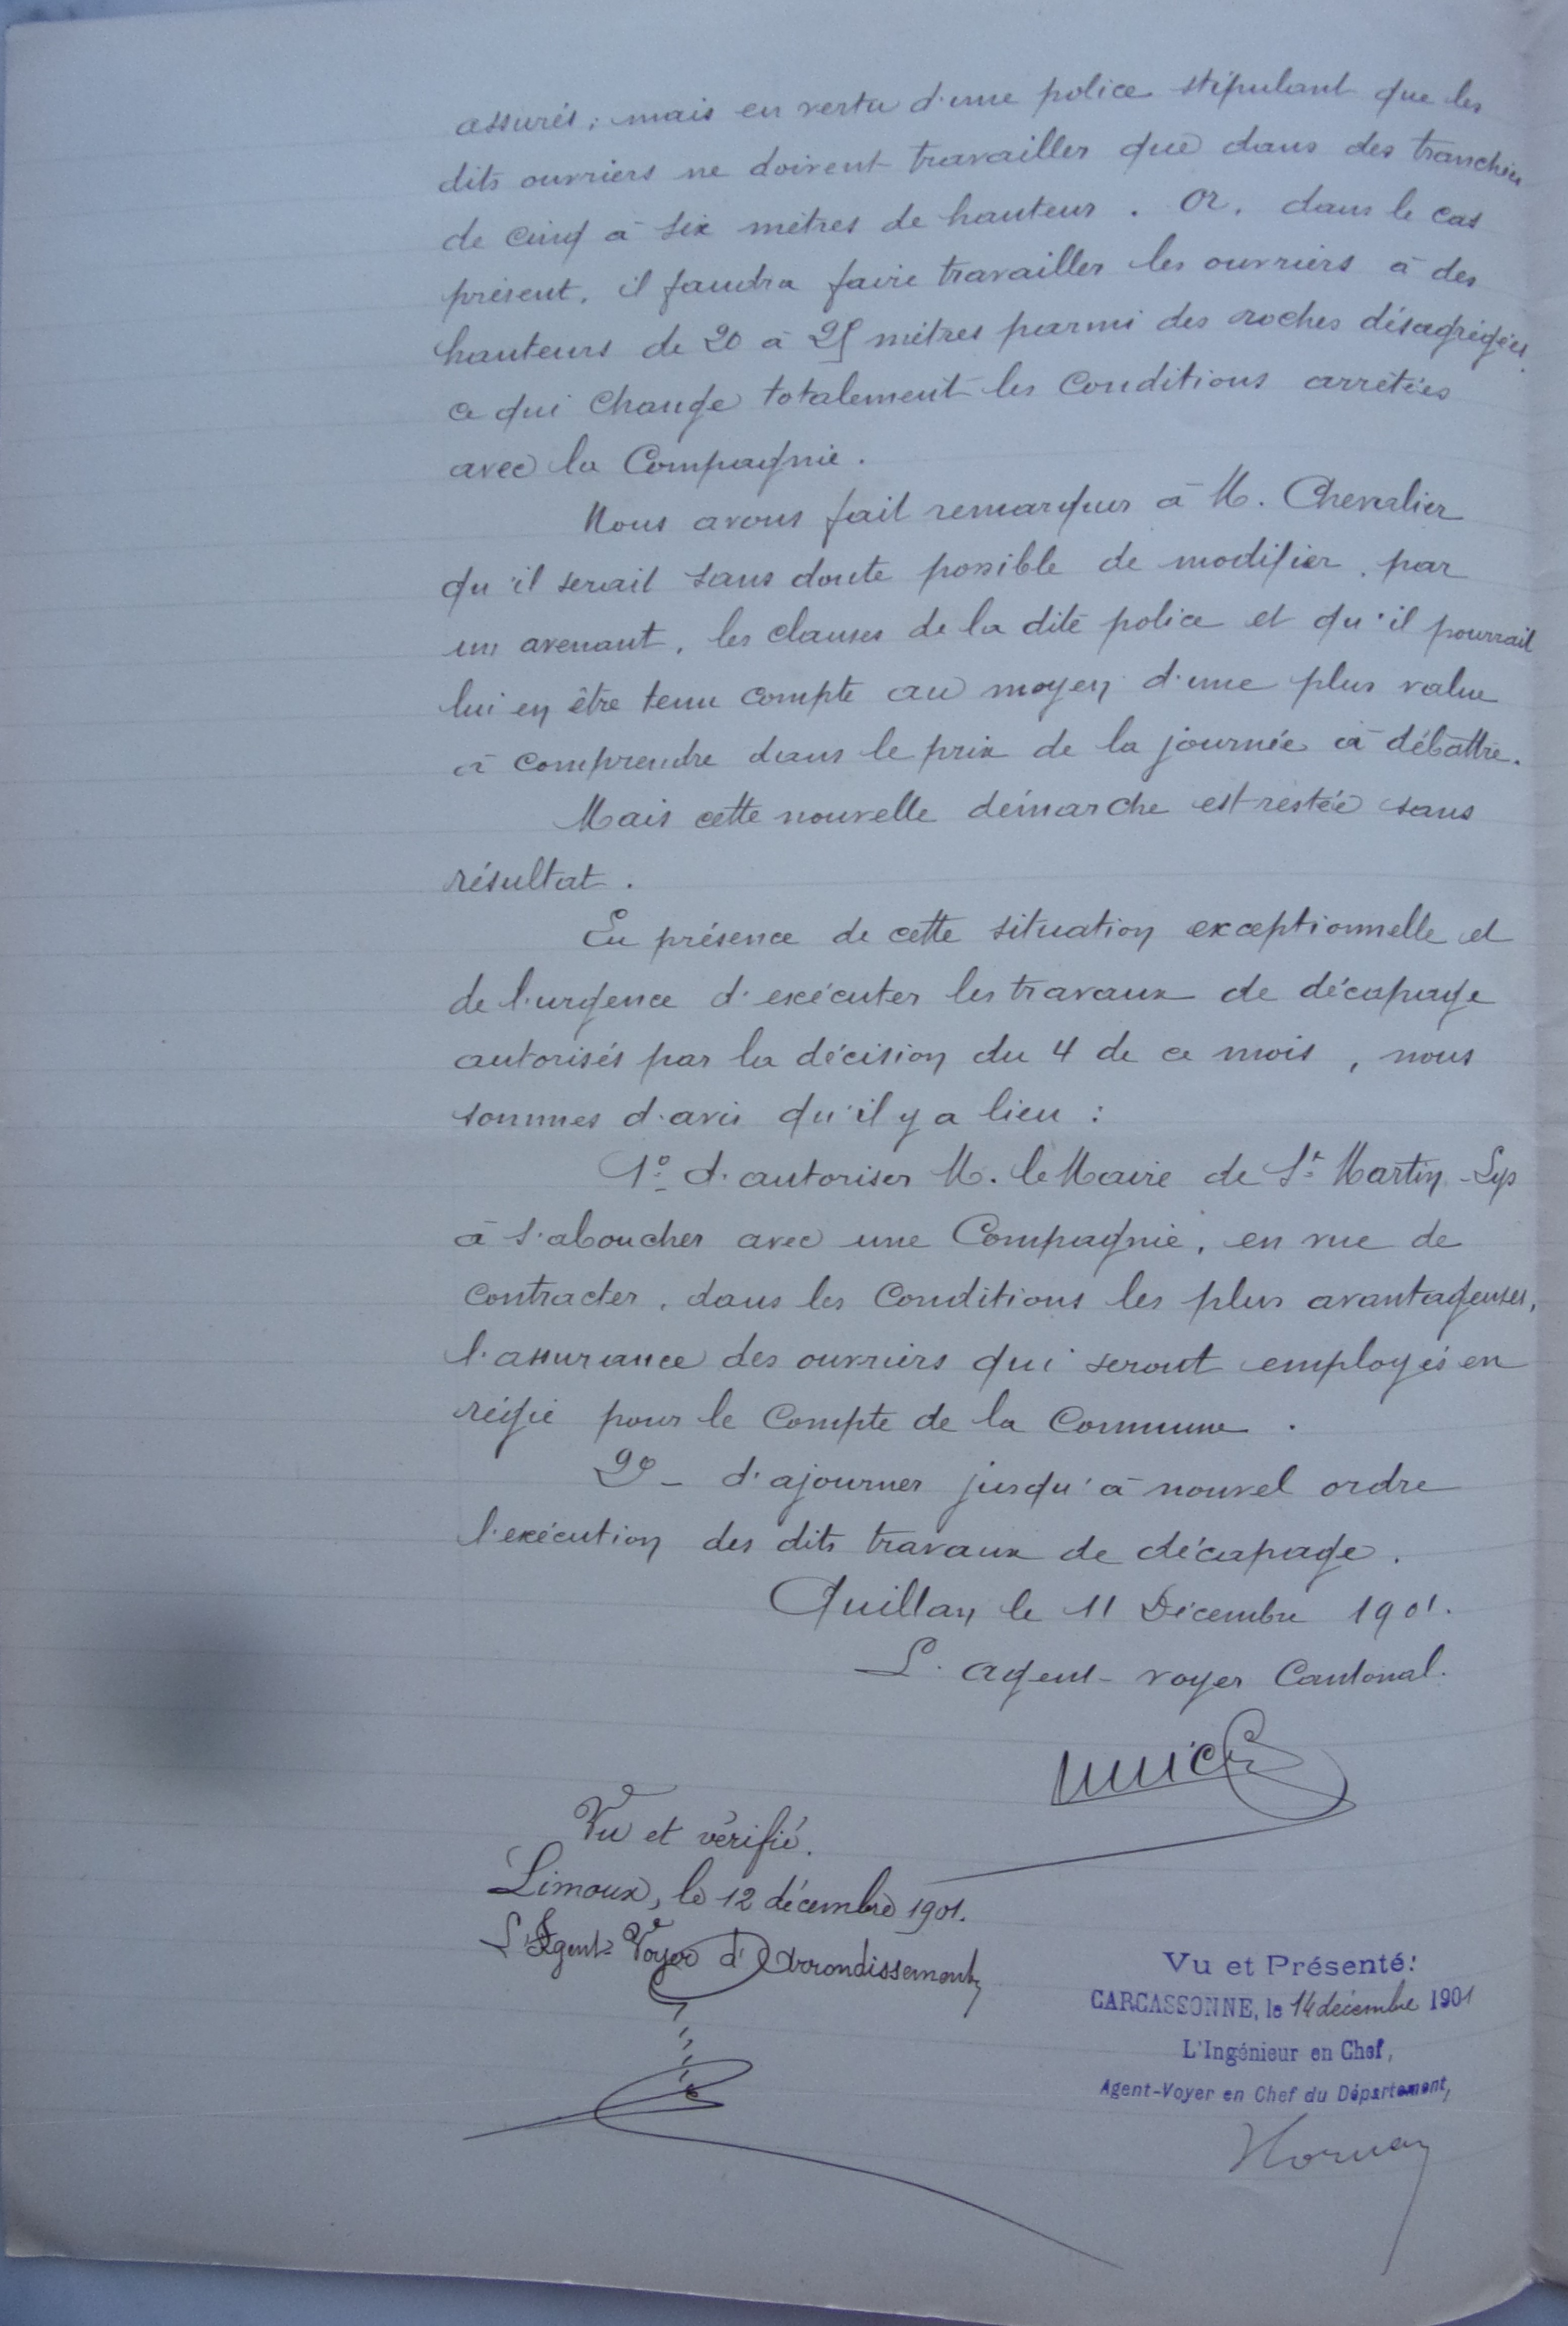 assurés ; mais en vertu d'une police stipulant que les
dits ouvriers ne doivent travailler que dans des tranchées
de cinq à six mètres de hauteur . Or, dans le cas
présent, il faudra faire travailler les ouvriers à des
hauteurs de 20 à 25 mètres parmi des roches désagrégées
ce qui change totalement les conditions arrêtées
avec la Compagnie .
Nous avons fait remarquer à M. Chevalier
qu'il serait sans doute possible de modifier, par
un avenant, les clauses de la dite police et qu'il pourrait
lui en être tenu compte au moyen d'une plus value
à comprendre dans le prix de la journée à débattre.
Mais cette nouvelle démarche est restée sans
résultat .
En présence de cette situation exceptionnelle et
de l'urgence d'exécuter les travaux de décapage
autorisés par la décision du 4 de ce mois , nous
sommes d'avis qu'il y a lieu :
1º d'autoriser M. le Maire de St Martin-Lys
à s'aboucher avec une Compagnie, en vue de
contracter, dans les conditions les plus avantageuses,
l'assurance des ouvriers qui seront employés en
régie pour le compte de la Commune .
2º - d'ajourner jusqu'à nouvel ordre
l'exécution des dits travaux de décapage .
Quillan le 11 Décembre 1901.
L'agent-voyer Cantonal.
Vu et vérifié.
Limoux, le 12 décembre 1901.
L'Agent-Voyer d'Arrondissement,
Vu et Présenté:
CARCASSONNE, le 14 décembre 1901
L'Ingénieur en Chef,
Agent-Voyer en Chef du Département,